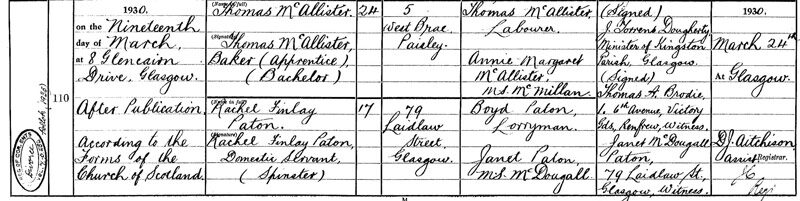 1930.
on the Nineteenth
day of March,
at 8 Glencairn
Drive, Glasgow.
110
After Publication,
According to the
Forms of the
Church of Scotland.
(Name in full)
Thomas McAllister
(Signature)
Thomas McAllister,
Baker (Apprentice),
(Bachelor)
24
5
West Brae,
Paisley
Thomas McAllister,
Labourer.
Annie Margaret
McAllister,
m.s. McMillan.
(Name in full)
Rachel Finlay
Paton.
(Signature)
Rachel Finlay Paton,
Domestic Servant,
(Spinster)
17
79
Laidlaw
Street,
Glasgow.
Boyd Paton,
Lorryman.
Janet Paton,
m.s. McDougall.
(Signed)
J. Torrens Dougherty
Minister of Kingston
Parish, Glasgow.
(Signed)
Thomas A. Brodie,
1. 6th Avenue, Victory
Gds, Renfrew, Witness.
Janet McDougall
Paton,
79 Laidlaw St.,
Glasgow, Witness.
1930.
March 24th
At Glasgow.
D.J. Aitchison
Assist Registrar.